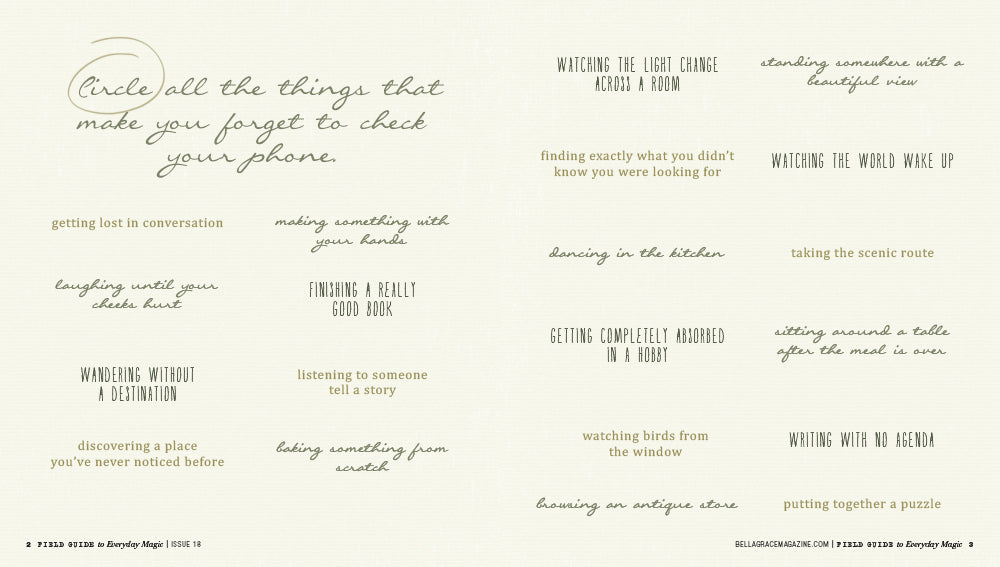 Circle all the things that
make you forget to check
your phone.
getting lost in conversation
making something with
your hands
laughing until your
cheeks hurt
FINISHING A REALLY
GOOD BOOK
WANDERING WITHOUT
A DESTINATION
listening to someone
tell a story
discovering a place
you've never noticed before
baking something from
scratch
2 FIELD GUIDE to Everyday Magic | ISSUE 18
WATCHING THE LIGHT CHANGE
ACROSS A ROOM
standing somewhere with a
beautiful view
finding exactly what you didn't
know you were looking for
WATCHING THE WORLD WAKE UP
dancing in the kitchen
taking the scenic route
GETTING COMPLETELY ABSORBED
IN A HOBBY
sitting around a table
after the meal is over
watching birds from
the window
WRITING WITH NO AGENDA
browsing an antique store
putting together a puzzle
BELLAGRACEMAGAZINE.COM | FIELD GUIDE to Everyday Magic 3